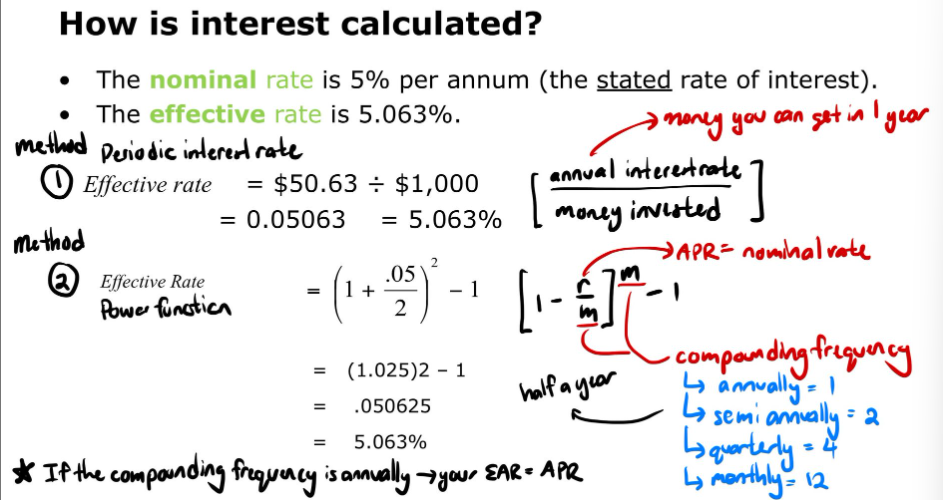 How is interest calculated?
• The nominal rate is 5% per annum (the stated rate of interest).
• The effective rate is 5.063%.
money you can get in 1 year
method Periodic interest rate
① Effective rate = $50.63 ÷ $1,000
= 0.05063 = 5.063%
[annual interest rate / money invested]
method
② Effective Rate = (1 + .05/2)² − 1
Power function
[1 - r/m]^m - 1
APR = nominal rate
= (1.025)2 − 1
= .050625
= 5.063%
compounding frequency
↳ annually = 1
↳ semi annually = 2
↳ quarterly = 4
↳ monthly = 12
half a year
* If the compounding frequency is annually → your EAR = APR